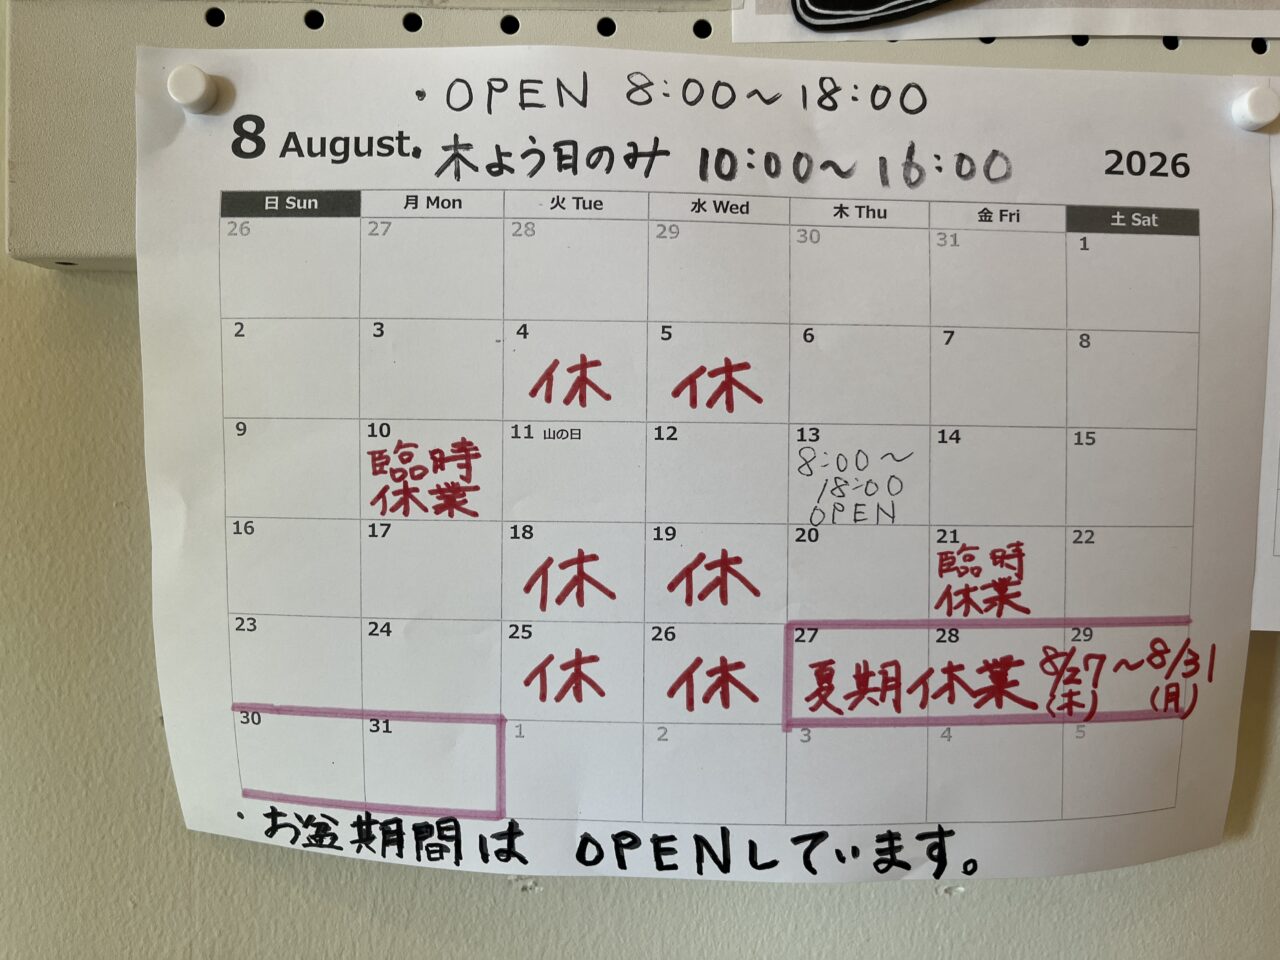 ・OPEN 8:00～18:00
8 August. 木よう日のみ 10:00～16:00 2026
日 Sun 月 Mon 火 Tue 水 Wed 木 Thu 金 Fri 土 Sat
26 27 28 29 30 31 1
2 3 4 5 6 7 8
休 休
9 10 11 山の日 12 13 14 15
臨時
休業
8:00～
18:00
OPEN
16 17 18 19 20 21 22
休 休
臨時
休業
23 24 25 26 27 28 29
休 休 夏期休業 8/27～8/31
(木) (月)
30 31 1 2 3 4 5
・お盆期間は OPENしています。